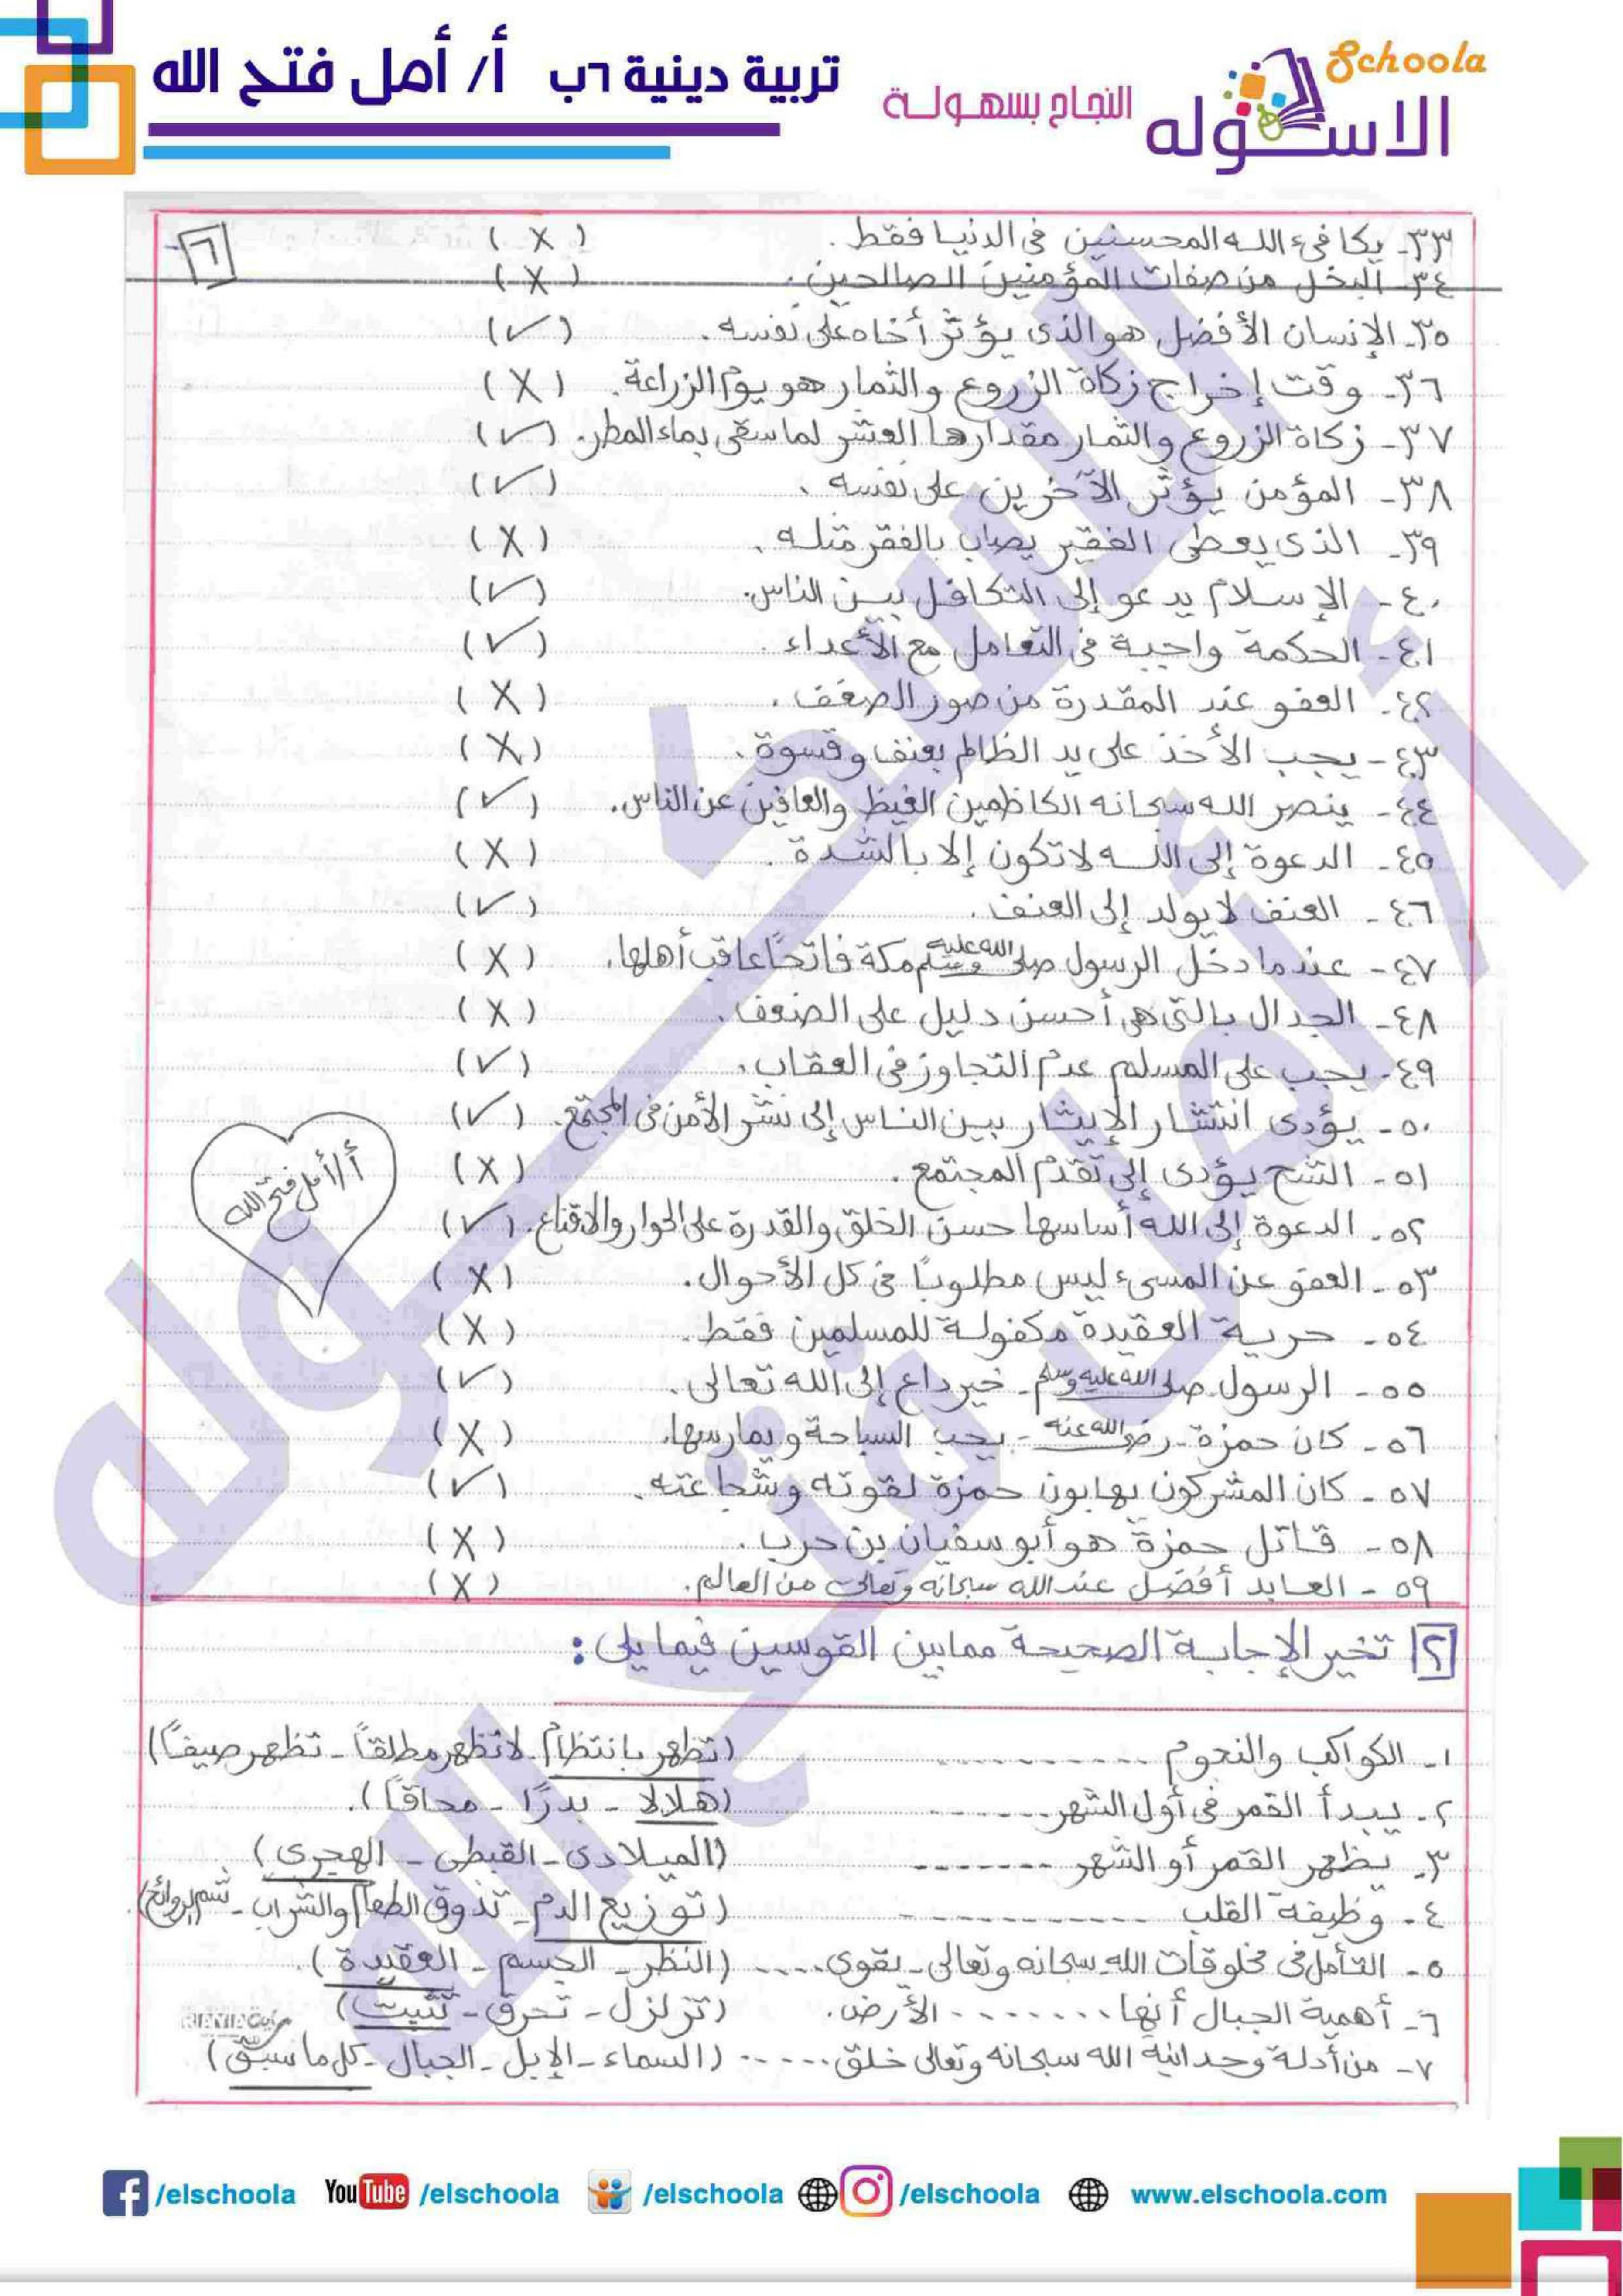 تربية دينية ٦ب أ/ أمل فتح الله
Schoola
الاسكوله
النجاح بسهولة
٦
٣٣- يكافئ الله المحسنين في الدنيا فقط. (X)
٣٤- البخل من صفات المؤمنين الصالحين. (X)
٣٥- الإنسان الأفضل هو الذى يؤثر أخاه على نفسه. (✓)
٣٦- وقت إخراج زكاة الزروع والثمار هو يوم الزراعة. (X)
٣٧- زكاة الزروع والثمار مقدارها العشر لما سقى بماء المطر. (✓)
٣٨- المؤمن يؤثر الآخرين على نفسه. (✓)
٣٩- الذى يعطى الفقير يصاب بالفقر مثله. (X)
٤٠- الإسلام يدعو إلى التكافل بين الناس. (✓)
٤١- الحكمة واجبة فى التعامل مع الأعداء. (✓)
٤٢- العفو عند المقدرة من صور الضعف. (X)
٤٣- يجب الأخذ على يد الظالم بعنف وقسوة. (X)
٤٤- ينصر الله سبحانه الكاظمين الغيظ والعافين عن الناس. (✓)
٤٥- الدعوة إلى الله لا تكون إلا بالشدة. (X)
٤٦- العنف لا يولد إلى العنف. (✓)
٤٧- عندما دخل الرسول صلى الله عليه وسلم مكة فاتحًا عاقب أهلها. (X)
٤٨- الجدال بالتى هى أحسن دليل على الضعف. (X)
٤٩- يجب على المسلم عدم التجاوز فى العقاب. (✓)
٥٠- يؤدى انتشار الإيثار بين الناس إلى نشر الأمن فى المجتمع. (✓)
أ/ أمل فتح الله
٥١- الشح يؤدى إلى تقدم المجتمع. (X)
٥٢- الدعوة إلى الله أساسها حسن الخلق والقدرة على الحوار والاقناع. (✓)
٥٣- العفو عن المسىء ليس مطلوبًا فى كل الأحوال. (X)
٥٤- حرية العقيدة مكفولة للمسلمين فقط. (X)
٥٥- الرسول صلى الله عليه وسلم - خير داع إلى الله تعالى. (✓)
٥٦- كان حمزة - رضى الله عنه - يحب السباحة ويمارسها. (X)
٥٧- كان المشركون يهابون حمزة لقوته وشجاعته. (✓)
٥٨- قاتل حمزة هو أبو سفيان بن حرب. (X)
٥٩- العابد أفضل عند الله سبحانه وتعالى من العالم. (X)
٢ تخير الإجابة الصحيحة مما بين القوسين فيما يلى:
١- الكواكب والنجوم ........ (تظهر بانتظام - لا تظهر مطلقاً - تظهر صيفاً)
٢- يبدأ القمر فى أول الشهر ........ (هلالا - بدرًا - محاقاً).
٣- يظهر القمر أو الشهر ........ (الميلادى - القبطى - الهجرى)
٤- وظيفة القلب ........ (توزيع الدم - تذوق الطعام والشراب - شم الروائح).
٥- التأمل فى مخلوقات الله - سبحانه وتعالى - يقوى ..... (النظر - الجسم - العقيدة).
٦- أهمية الجبال أنها ........ الأرض. (تزلزل - تحرق - تثبيت)
٧- من أدلة وحدانية الله سبحانه وتعالى خلق ...... (السماء - الإبل - الجبال - كل ما سبق)
الاسكوله
أ/ أمل فتح الله
/elschoola YouTube /elschoola /elschoola /elschoola www.elschoola.com